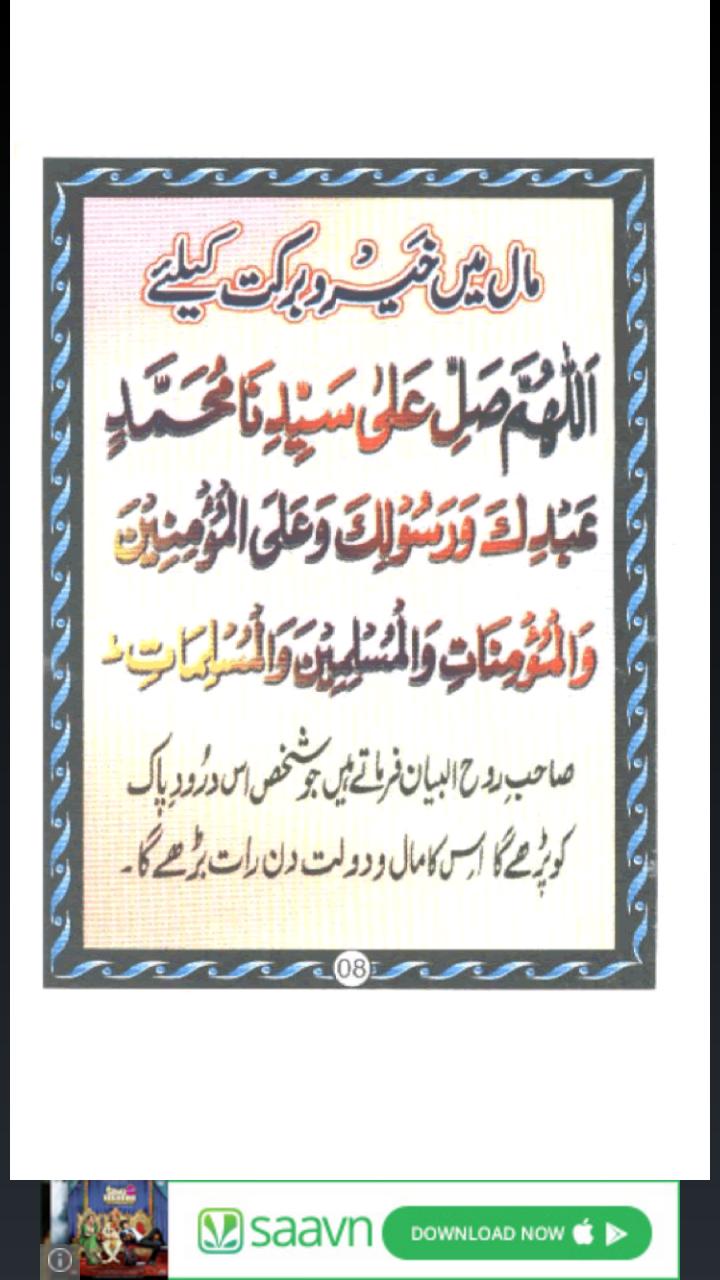 مال میں خَیْر و برکت کیلئے
اَللّٰهُمَّ صَلِّ عَلٰى سَيِّدِنَا مُحَمَّدٍ
عَبْدِكَ وَرَسُوْلِكَ وَعَلَى الْمُؤْمِنِيْنَ
وَالْمُؤْمِنَاتِ وَالْمُسْلِمِيْنَ وَالْمُسْلِمَاتِ ط
صاحبِ روح البیان فرماتے ہیں جو شخص اس درُودِ پاک
کو پڑھے گا اِس کا مال و دولت دن رات بڑھے گا۔
08
saavn
DOWNLOAD NOW